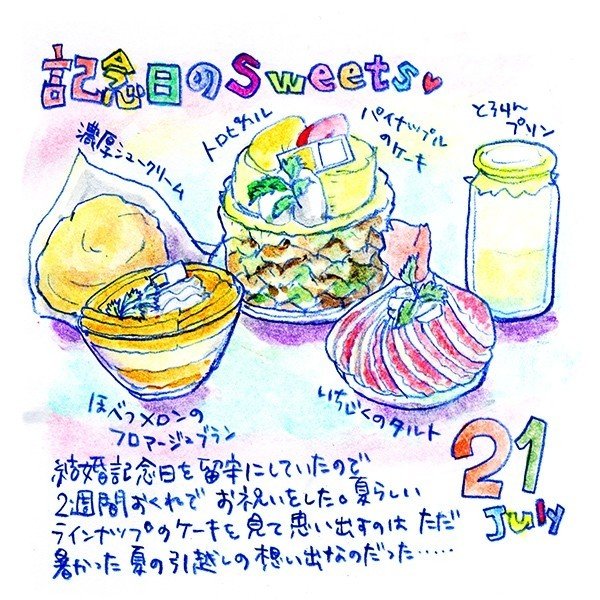 記念日のSweets♥
濃厚シュークリーム
トロピカル
パイナップル
のケーキ
とろりん
プリン
ほべつメロンの
フロマージュブラン
いちじくのタルト
結婚記念日を留守にしていたので
2週間おくれでお祝いをした。夏らしい
ラインナップのケーキを見て思い出すのはただ
暑かった夏の引越しの想い出なのだった……
21
July